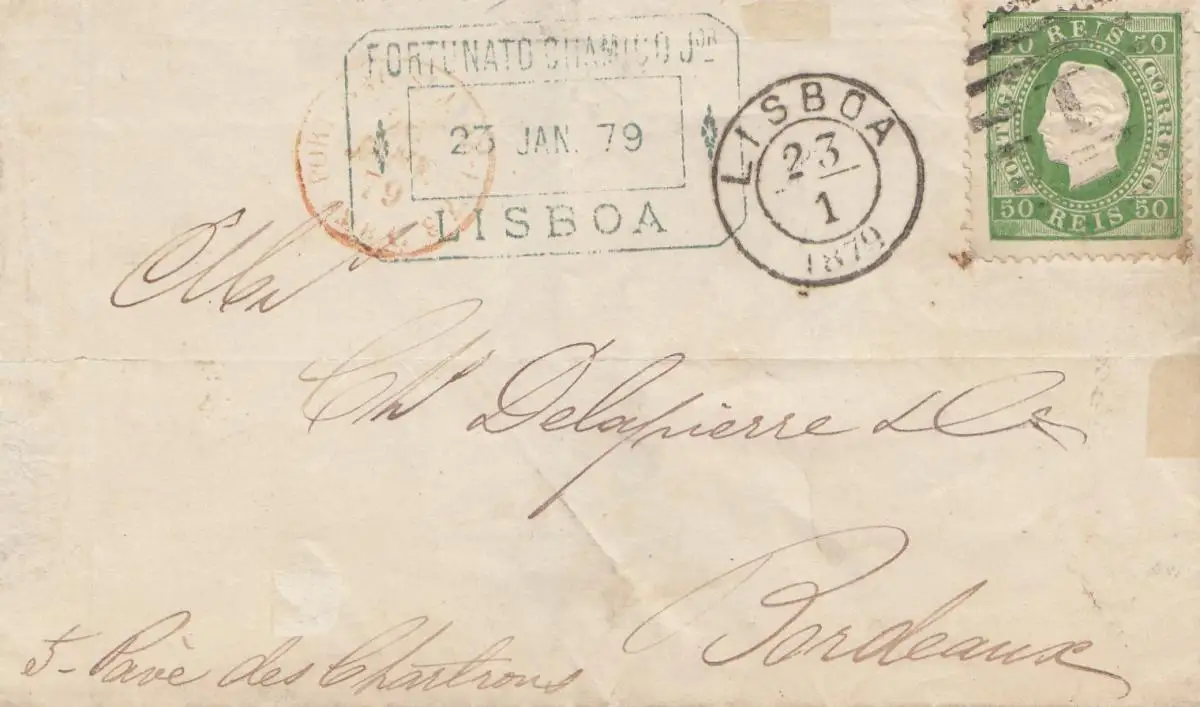 FORTUNATO CHAMIÇO JOR
23 JAN. 79
LISBOA
LISBOA
23
1
1879
50 REIS 50
CORREIO
50 REIS 50
Delapierre & Co
Bordeaux
5 - Pavè des Chartrons